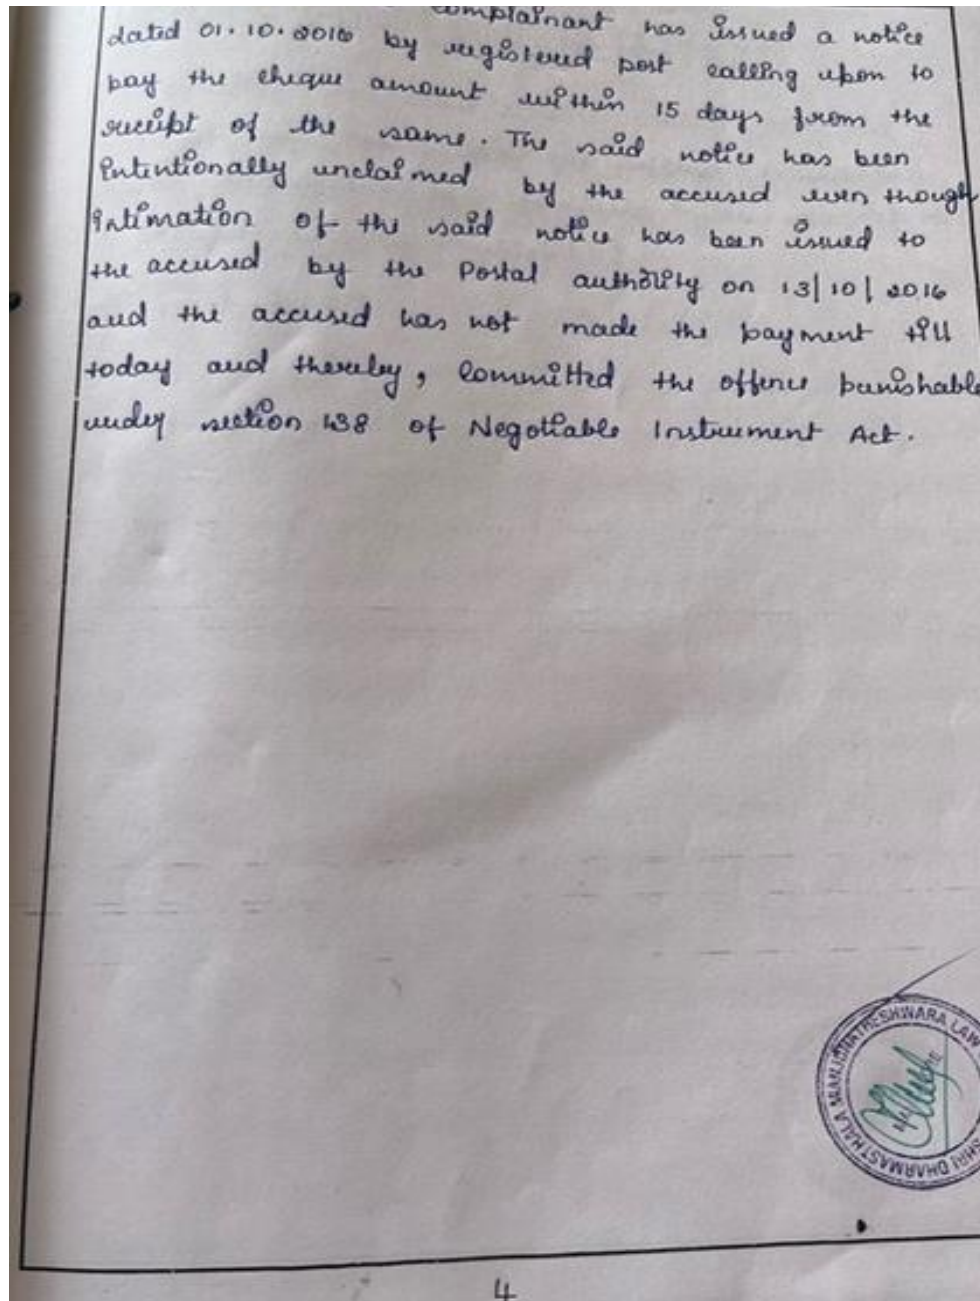 complainant has issued a notice
dated 01.10.2016 by registered post calling upon to
pay the cheque amount within 15 days from the
receipt of the same. The said notice has been
intentionally unclaimed by the accused even though
intimation of the said notice has been issued to
the accused by the Postal authority on 13/10/2016
and the accused has not made the payment till
today and thereby, committed the offence punishable
under section 138 of Negotiable Instrument Act.
SHRI DHARMASTHALA MANJUNATHESHWARA LAW
4